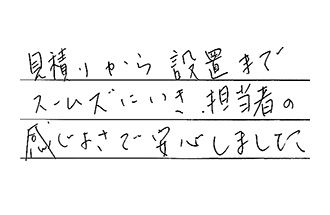 見積りから設置まで
スムズにいき、担当者の
感じよさで安心しました